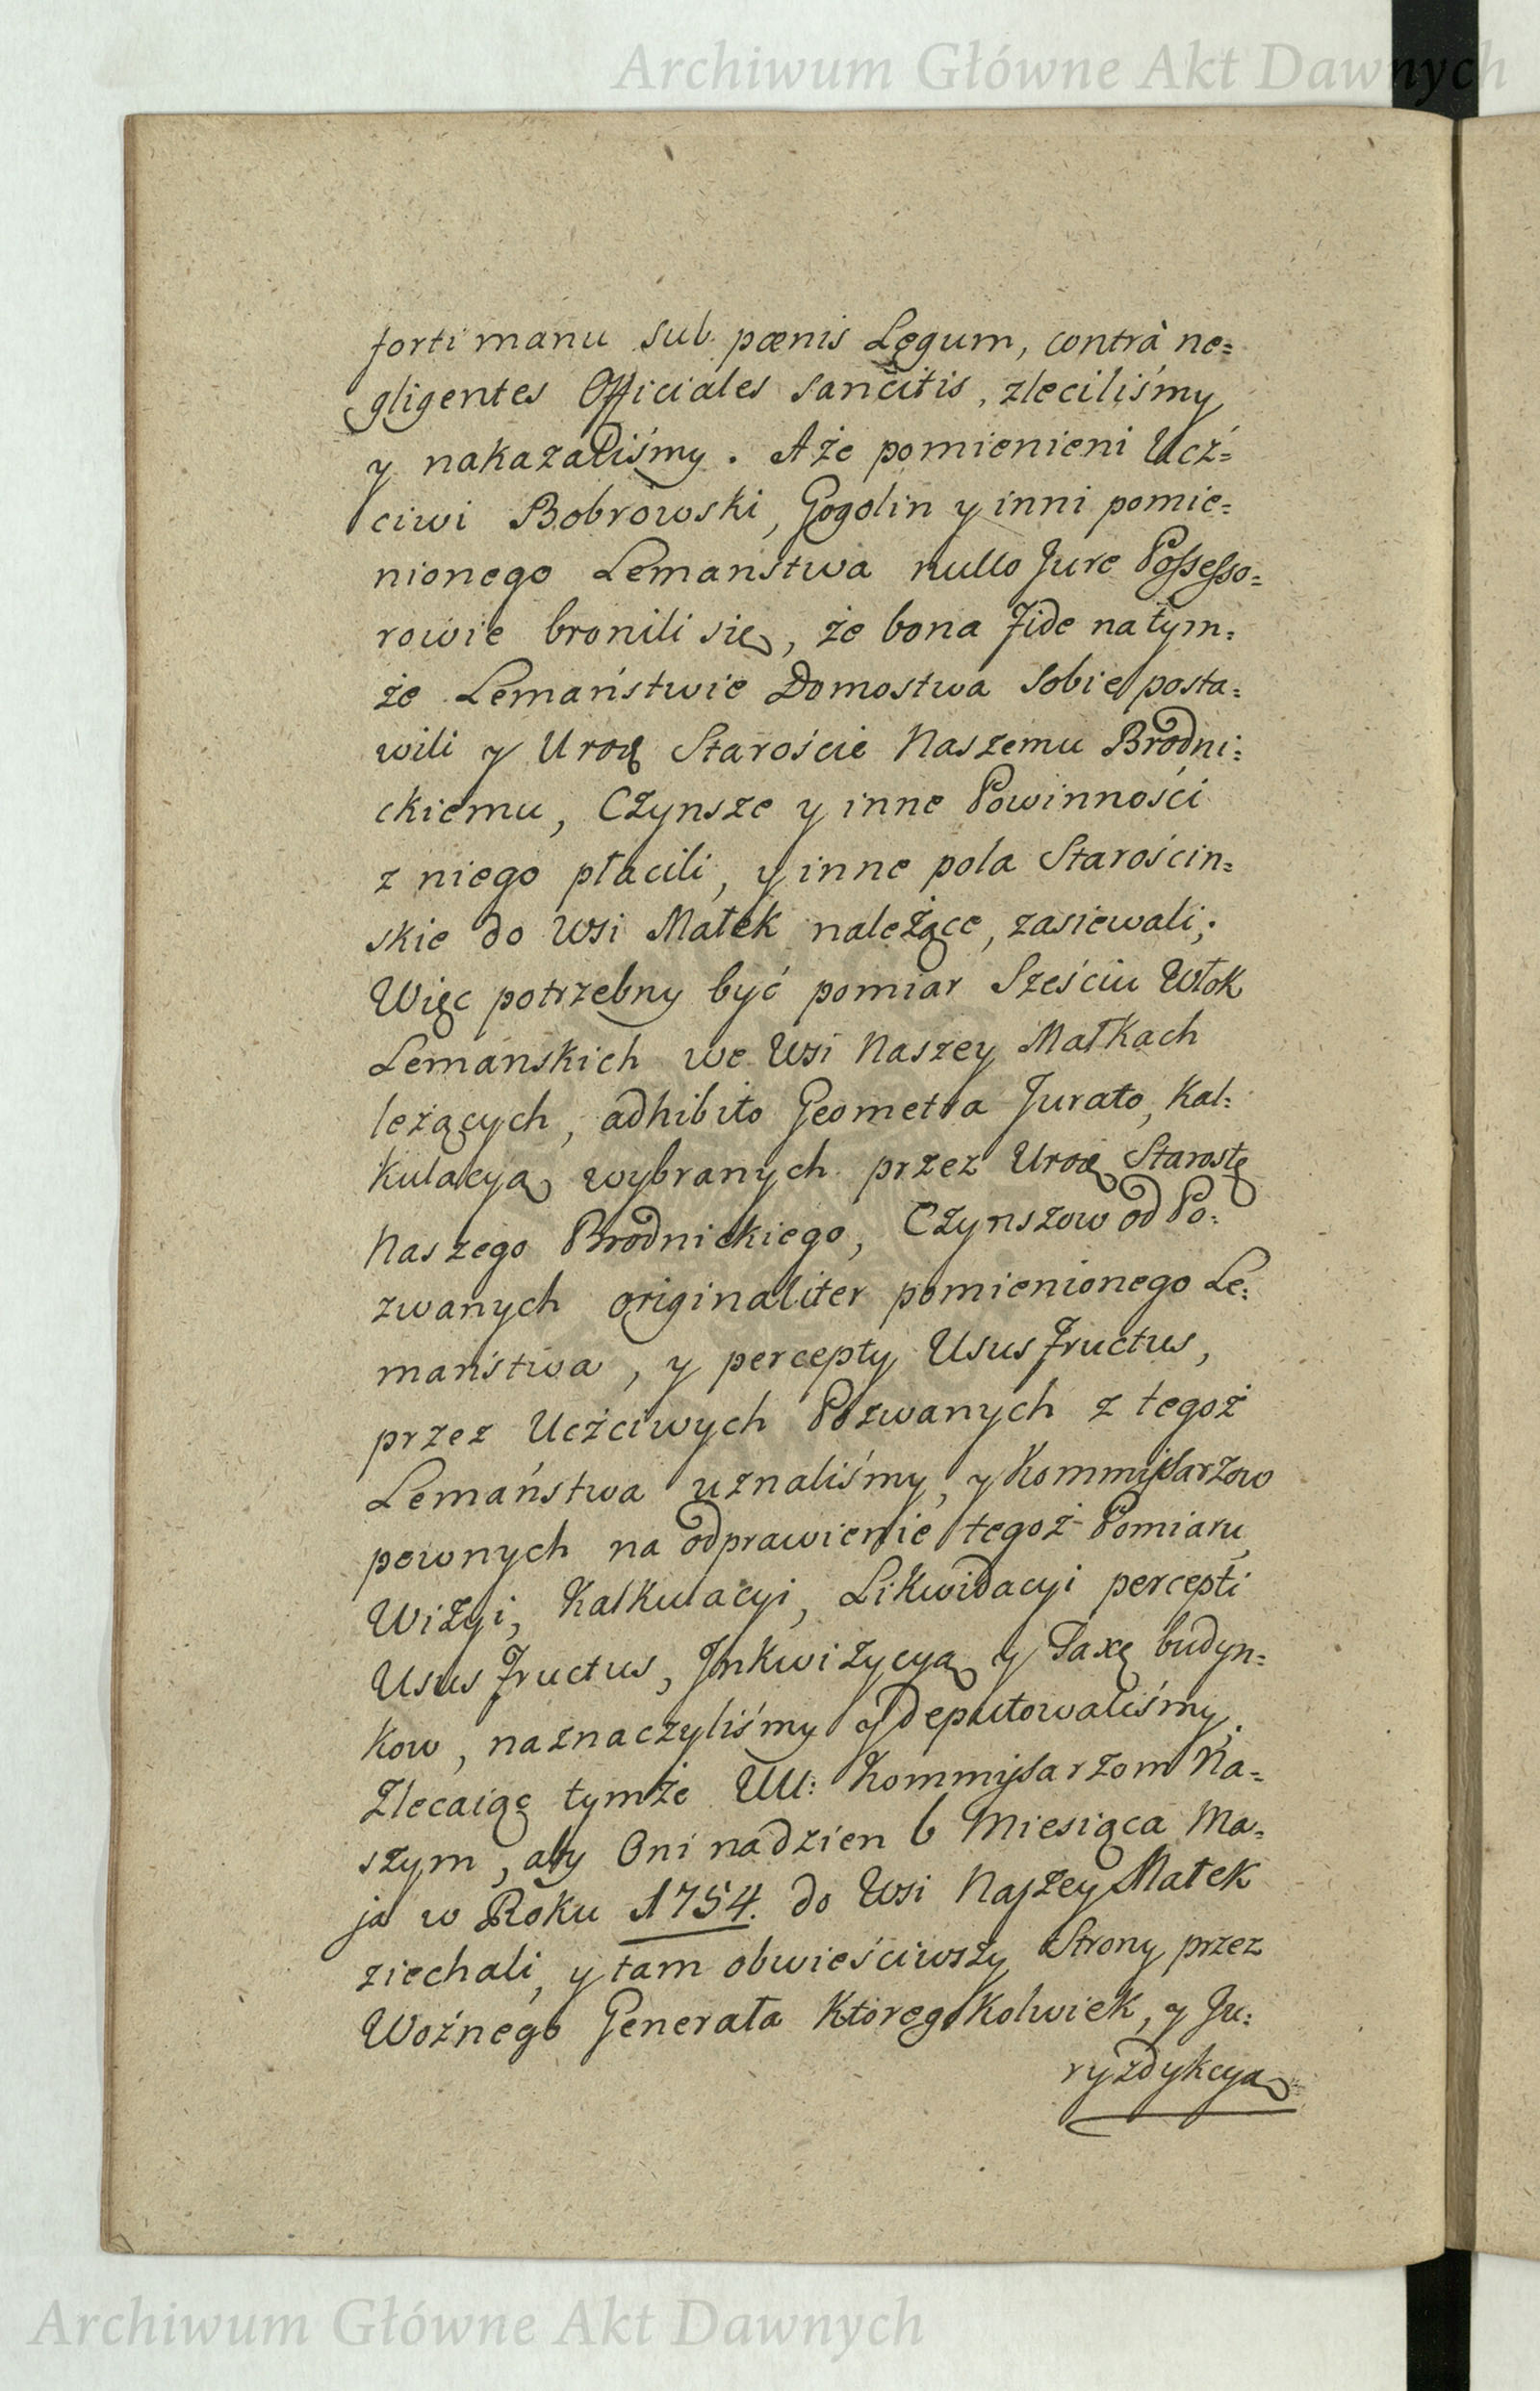 Archiwum Główne Akt Dawnych
forti manu sub pœnis Legum, contrà ne=
gligentes Officiales sancitis, zleciliśmy
y nakazaliśmy. A że pomienieni Ucź=
ciwi Bobrowski, Gogolin y inni pomie=
nionego Lemanstwa nullo Jure Possesso=
rowie bronili się, że bona Fide na tym=
że Lemaństwie Domostwa sobie posta=
wili y Uroę Staroście Naszemu Brodni=
ckiemu, Czynsze y inne Powinności
z niego płacili, y inne pola Starościn=
skie do Wsi Małek należące, zasiewali;
Więc potrzebny być pomiar Sześciu Włok
Lemanskich we Wsi Naszey Małkach
leżących, adhibito Geometra Jurato, Kal=
kulacyą wybranych przez Uroę Starostę
Naszego Brodnickiego, Czynszow od Po=
zwanych originaliter pomienionego Le=
maństwa, y percepty Usus Fructus,
przez Ucźciwych Pozwanych z tegoż
Lemaństwa uznaliśmy, y Kommissarzow
pewnych na odprawienie tegoż Pomiaru,
Wizyi, Kalkulacyi, Likwidacyi percepti
Usus Fructus, Inkwizycyą y Taxę budyn=
kow, naznaczyliśmy y deputowaliśmy.
Zlecaiąc tymże UU: Kommissarzom Na=
szym, aby Oni na dzien 6 Miesiąca Ma=
ja w Roku 1754. do Wsi Naszey Małek
ziechali, y tam obwieściwszy Strony przez
Woźnego Generała ktoregokolwiek, y Ju=
ryzdykcyą
Archiwum Główne Akt Dawnych